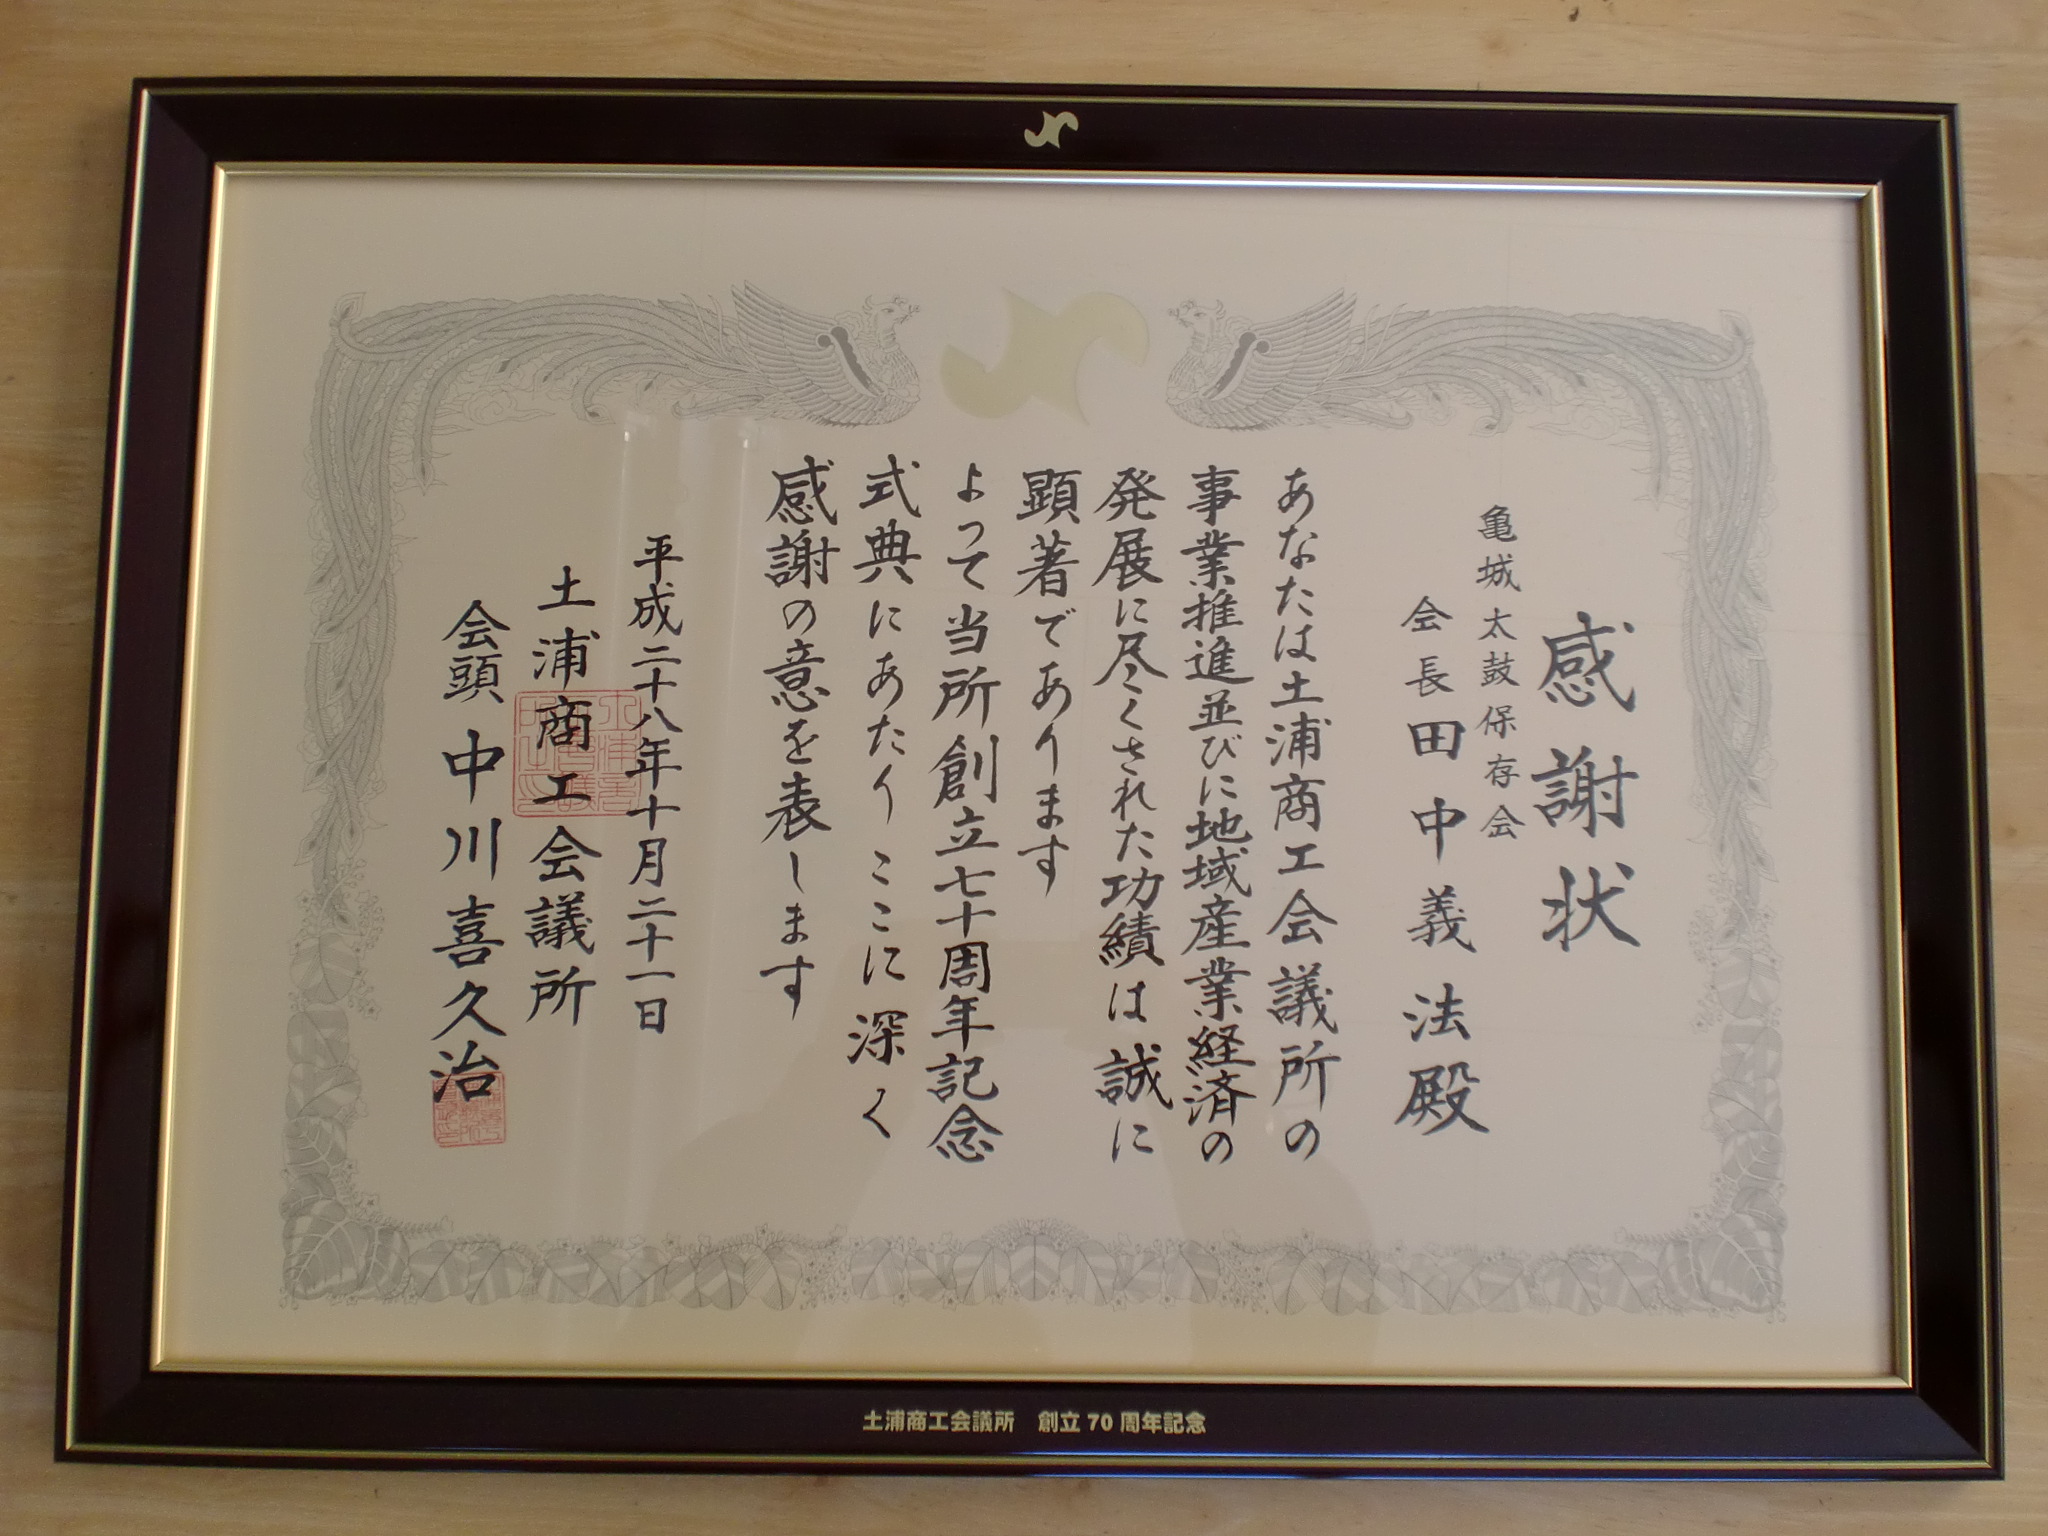 感謝状
亀城太鼓保存会
会長田中義法殿
あなたは土浦商工会議所の
事業推進並びに地域産業経済の
発展に尽くされた功績は誠に
顕著であります
よって当所創立七十周年記念
式典にあたりここに深く
感謝の意を表します
平成二十八年十月二十一日
土浦商工会議所
会頭中川喜久治
土浦商工会議所 創立70周年記念